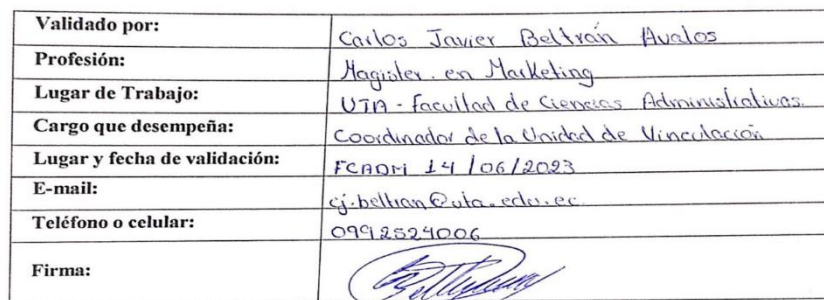 Validado por: Carlos Javier Beltrán Avalos
Profesión: Magister en Marketing
Lugar de Trabajo: UTA - Facultad de Ciencias Administrativas.
Cargo que desempeña: Coordinador de la Unidad de Vinculación
Lugar y fecha de validación: FCADM 14/06/2023
E-mail: cj.beltran@uta.edu.ec
Teléfono o celular: 0992524006
Firma: